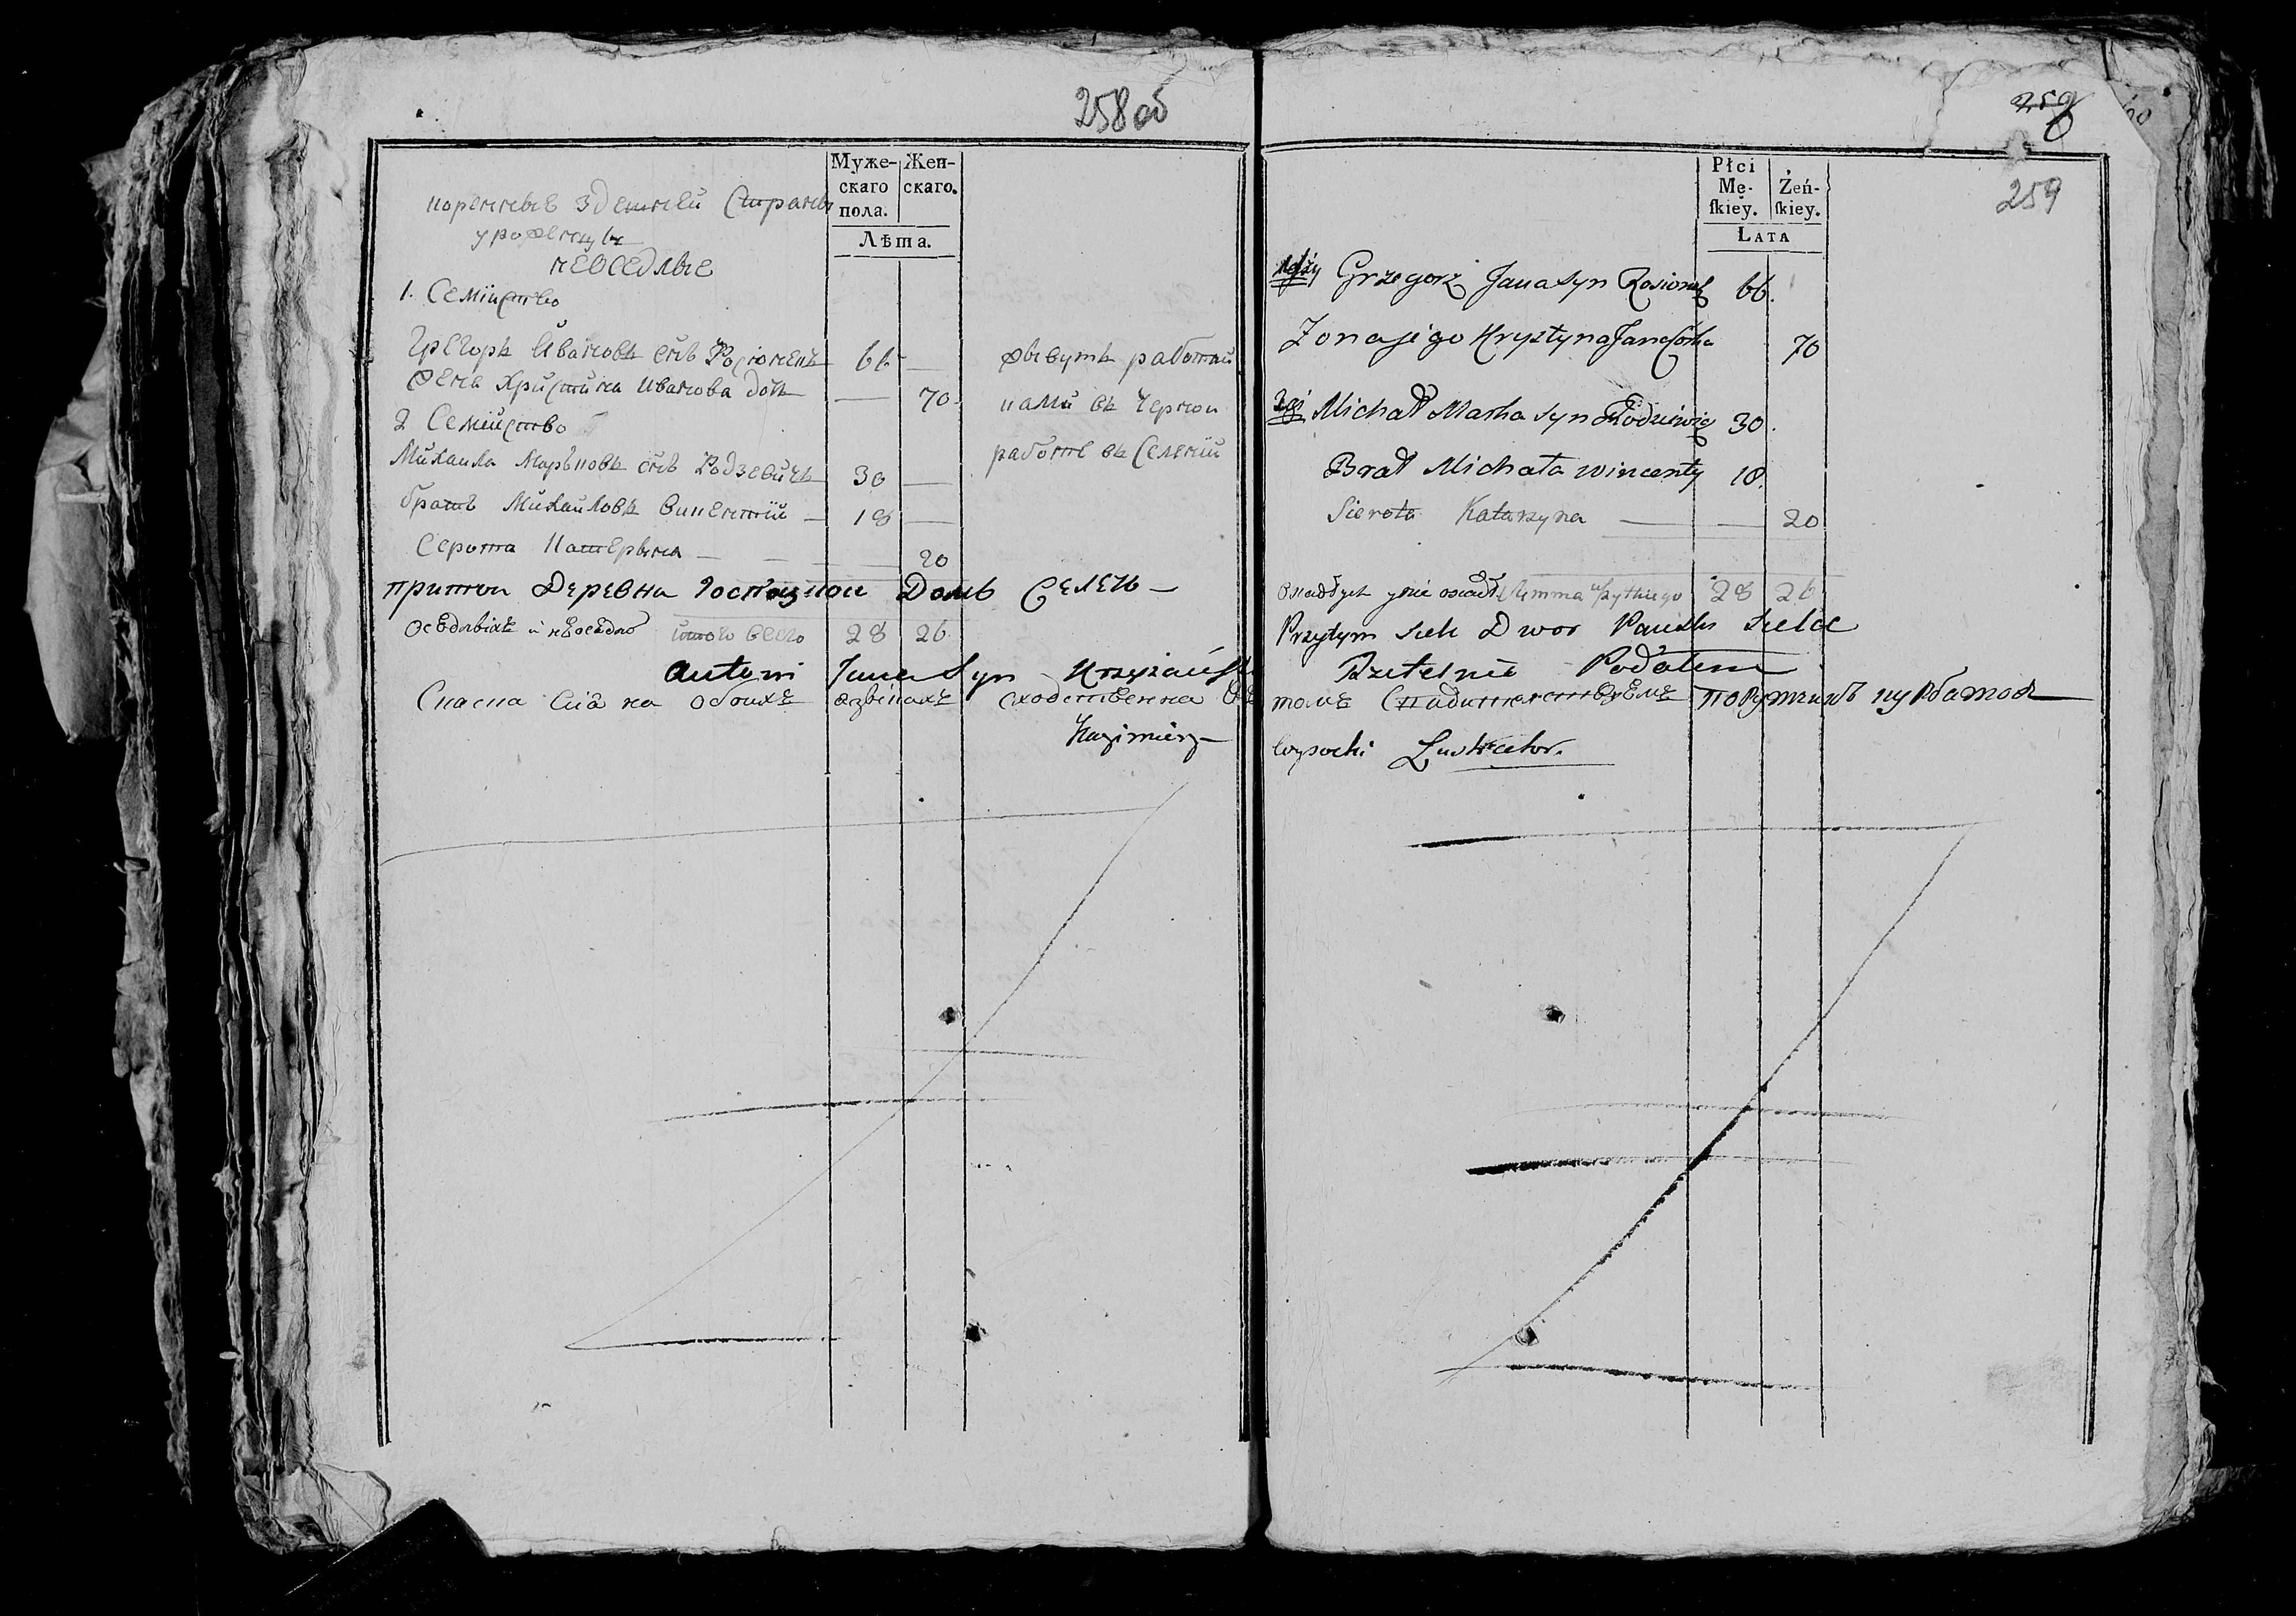 258 об
Муже-
скаго
пола.
Жен-
скаго.
Лѣта.
коренные здешней Страны
уроженцы
неоседлые
1. Семїиство
Грегоръ Ивановъ снъ Росюменъ 66 —
Жена Христина Иванова дочь — 70
2 Семїиство
Михаила Марковъ снъ Родзевичъ 30 —
братъ Михаиловъ Винентїй — 18 —
Серота Катерына — — 20
живутъ работни
ками въ Черной
работе въ Селении
притои Деревна Господзкои Домъ Селецъ —
Оседлыхъ и неоседло итого всего 28 26
Antoni Jana Syn
Сказка сиа на обоихъ языкахъ сходственна
Kazimierz
259
259
Płci
Mę-
ſkiey.
Żeń-
ſkiey.
Lata
1szy Grzegorz Jana syn 66.
Zona jego Krystyna Jana Corka 70
2gi Michał Marka syn Rodziewicz 30.
Brat Michała wincenty 18.
Sierota Katarzyna — — 20
osiadłych y nie osiadł Summa wszytkiego 28 26
Przytym siele Dwor Pański Sielce
Rzetelnie Podałem
порутчикъ курбатов
wysocki Lustrator.